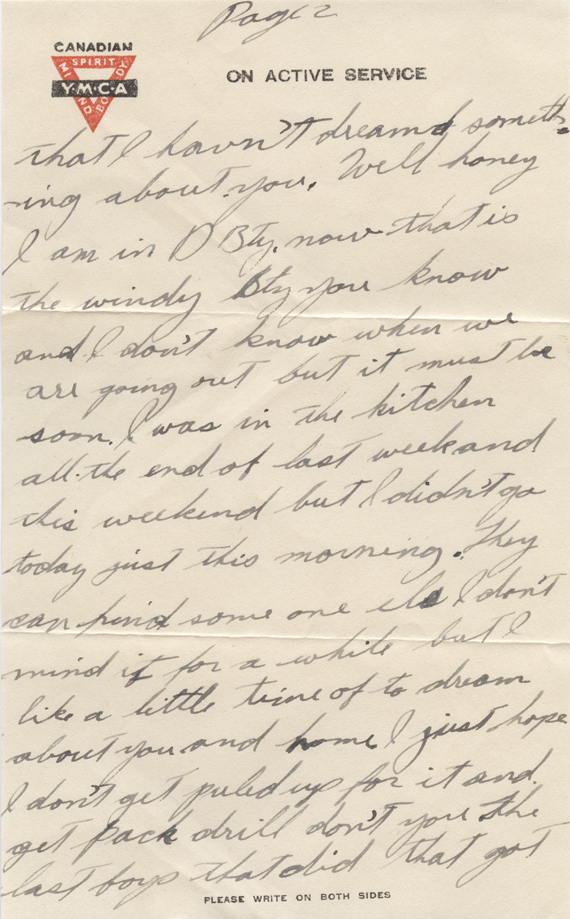 Page 2
CANADIAN
SPIRIT
MIND
BODY
Y·M·C·A
ON ACTIVE SERVICE
that I havn't dreamd someth-
-ing about you. Well honey
I am in D Bty. now that is
the windy Bty you know
and I don't know when we
are going out but it must be
soon. I was in the kitchen
all the end of last week and
this weekend but I didn't go
today just this morning. They
can find some one els I don't
mind it for a while but I
like a little time of to dream
about you and home I just hope
I don't get puled up for it and
get pack drill don't you the
last boys that did that got
PLEASE WRITE ON BOTH SIDES